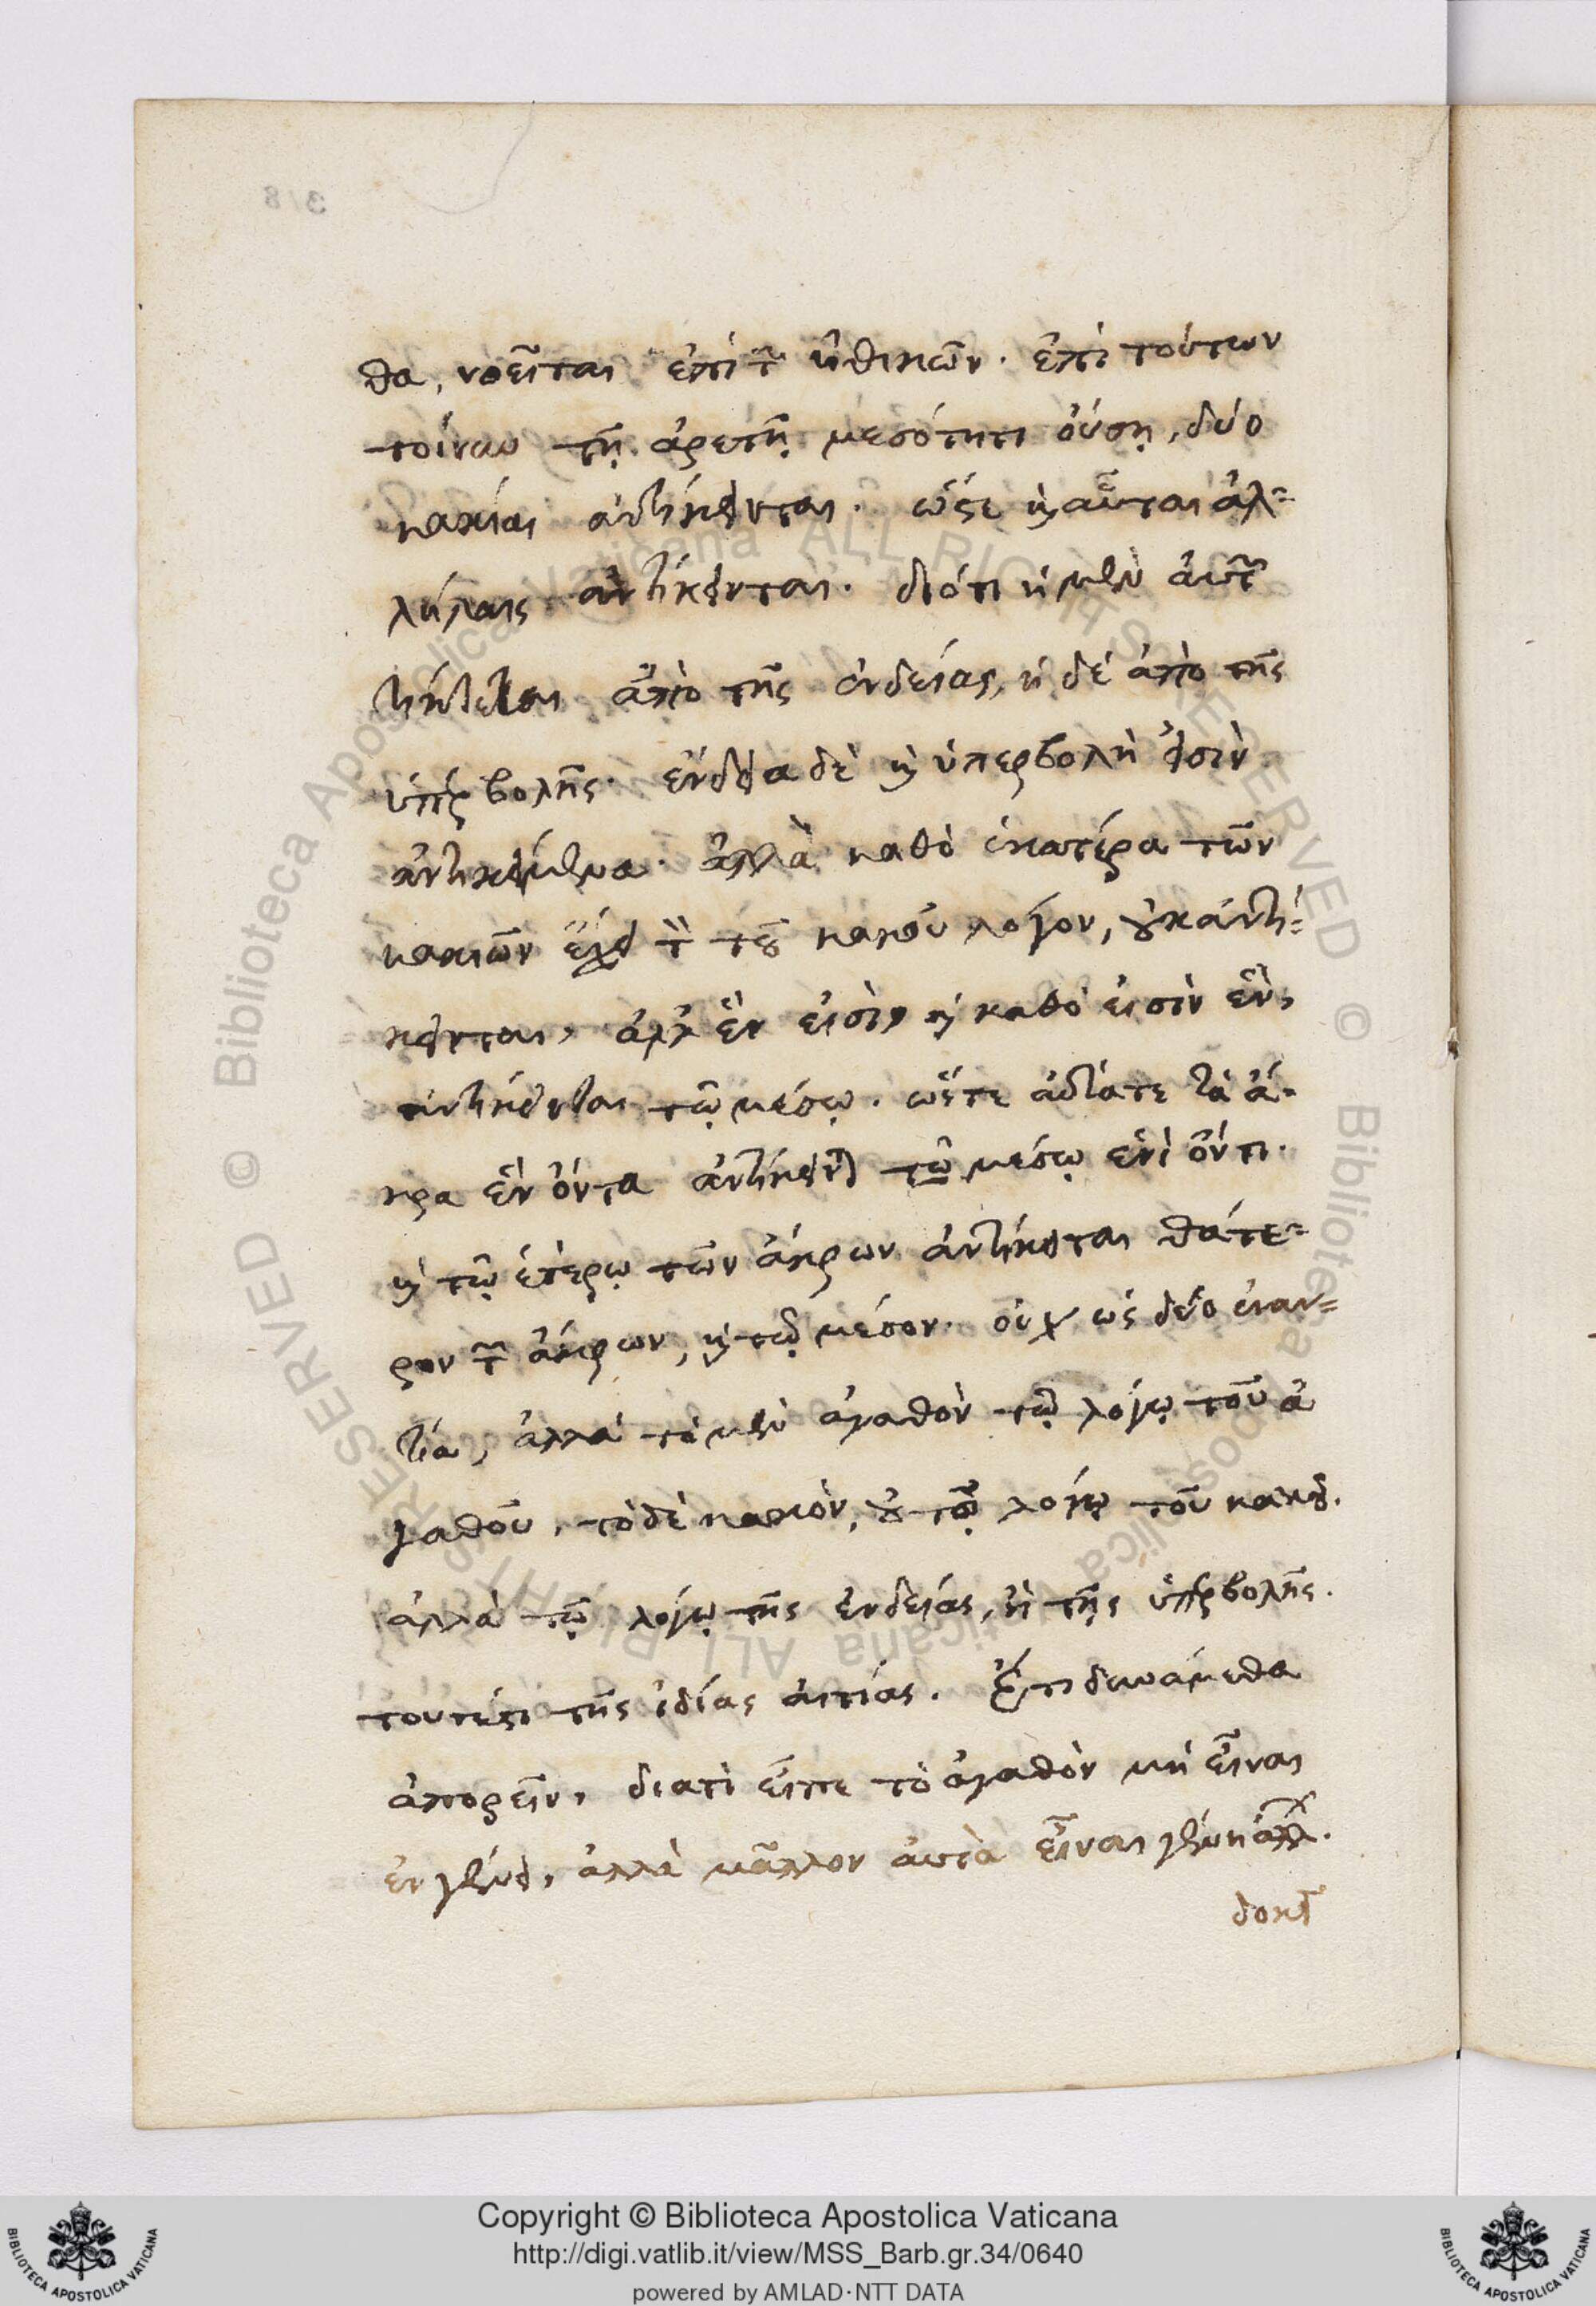 θα, νοεῖται ἐπὶ τῶν ἠθικῶν. ἐπὶ τούτων
τοίνυν τῇ ἀρετῇ μεσότητι οὔσῃ, δύο
κακίαι ἀντίκεινται. ὥστε καὶ αὗται ἀλ=
λήλαις ἀντίκεινται. διότι ἡ μὲν αὐτῶν
ἀπὸ τῆς ἐνδείας, ἡ δὲ ἀπὸ τῆς
ὑπερβολῆς. ἔνδεια δὲ καὶ ὑπερβολὴ εἰσὶν
ἀντικείμενα. ἀλλὰ καθὸ ἑκατέρα τῶν
κακιῶν ἔχει τὸν τοῦ κακοῦ λόγον, οὐκ ἀντί=
κεινται, ἀλλ' ἕν εἰσὶν καὶ καθὸ εἰσὶν ἓν,
ἀντίκεινται τῷ μέσῳ. ὥστε τὰ ἄ=
κρα ἓν ὄντα ἀντίκειται τῷ μέσῳ ἑνὶ ὄντι.
καὶ τῷ ἑτέρῳ τῶν ἄκρων ἀντίκειται θάτε=
ρον τῶν ἄκρων, καὶ τῷ μέσον. οὐχ ὡς δύο ἐναν=
τία, ἀλλὰ τὸ μὲν ἀγαθὸν τῷ λόγῳ τοῦ ἀ
γαθοῦ, τὸ δὲ κακὸν, οὐ τῷ λόγῳ τοῦ κακοῦ.
ἀλλὰ τῷ λόγῳ τῆς ἐνδείας, ἢ τῆς ὑπερβολῆς.
τουτέστι τῆς ἰδίας αἰτίας. Ἔτι δεισάμεθα
ἀπορεῖν, διατὶ εἶπε τὸ ἀγαθὸν μὴ εἶναι
ἐν γένει, ἀλλὰ μᾶλλον αὐτὰ εἶναι γένη ἄλλων.
δοκεῖ
Copyright © Biblioteca Apostolica Vaticana
http://digi.vatlib.it/view/MSS_Barb.gr.34/0640
powered by AMLAD·NTT DATA